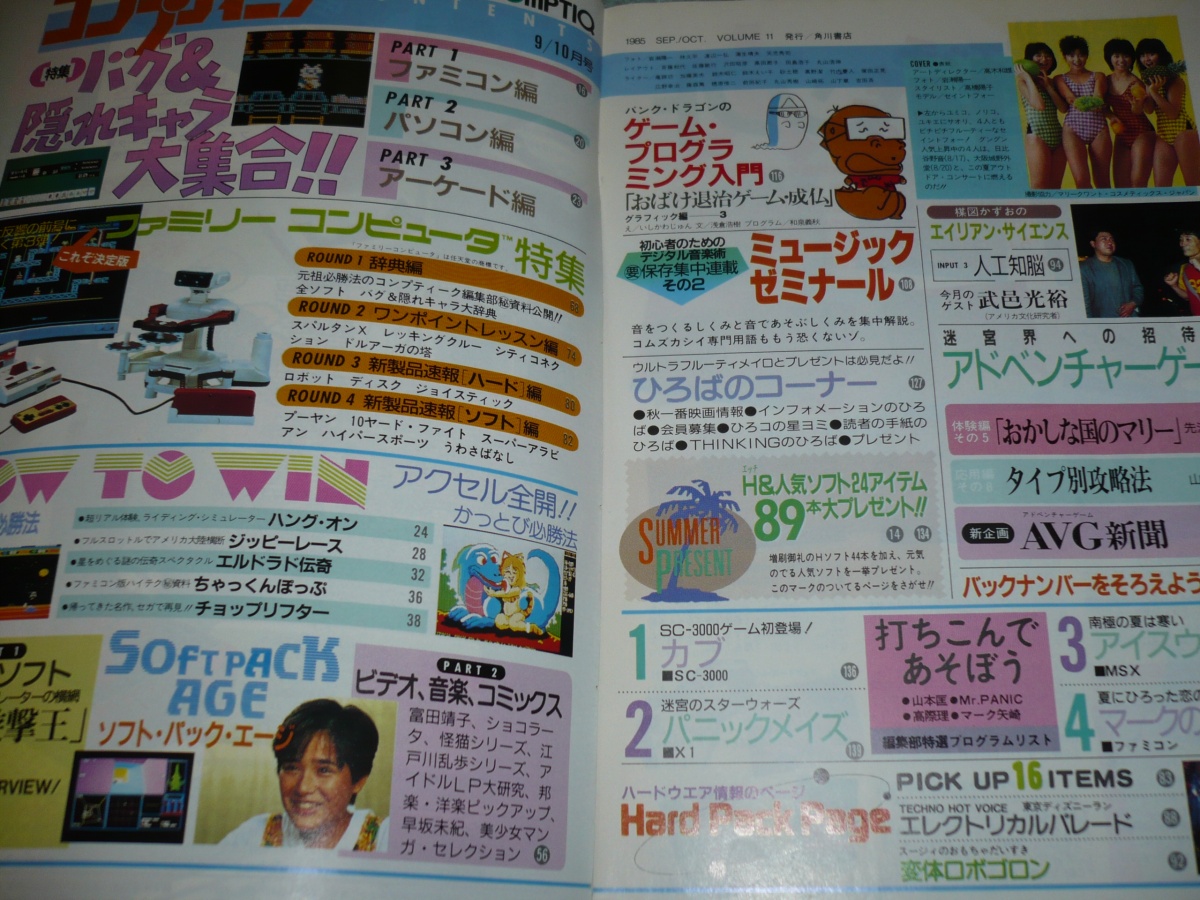 コンプティーク
COMPTIQ
CONTENTS
9/10月号
特集
バグ&
隠れキャラ
大集合!!
PART 1
ファミコン編
16
PART 2
パソコン編
20
PART 3
アーケード編
ファミリー コンピュータ™特集
「ファミリーコンピュータ」は任天堂の商標です。
これぞ決定版
ROUND 1 辞典編
元祖必勝法のコンプティーク編集部秘資料公開!!
全ソフト バグ&隠れキャラ大辞典
68
ROUND 2 ワンポイントレッスン編
74
スパルタンX レッキングクルー シティコネク
ション ドルアーガの塔
ROUND 3 新製品速報[ハード]編
ロボット ディスク ジョイスティック
80
ROUND 4 新製品速報[ソフト]編
82
プーヤン 10ヤード・ファイト スーパーアラビ
アン ハイパースポーツ うわさばなし
HOW TO WIN
アクセル全開!!
かっとび必勝法
必勝法
●超リアル体験、ライディング・シミュレーター ハング・オン 24
●フルスロットルでアメリカ大陸横断 ジッピーレース 28
●星をめぐる謎の伝奇スペクタクル エルドラド伝奇 32
●ファミコン版ハイテク秘資料 ちゃっくんぽっぷ 36
●帰ってきた名作、セガで再見!! チョップリフター 38
SOFT PACK
AGE
ソフト・パック・エージ
PART 2
ビデオ、音楽、コミックス
富田靖子、ショコラー
タ、怪猫シリーズ、江
戸川乱歩シリーズ、ア
イドルLP大研究、邦
楽・洋楽ピックアップ、
早坂未紀、美少女マン
ガ・セレクション 56
1985 SEP./OCT. VOLUME 11 発行/角川書店
パンク・ドラゴンの
ゲーム・
プログラ
ミング入門
116
「おばけ退治ゲーム・成仏」
グラフィック編――3
え/いしかわじゅん 文/浅倉浩樹 プログラム/和泉義秋
初心者のための
デジタル音楽術
要保存集中連載
その2
ミュージック
ゼミナール
108
音をつくるしくみと音であそぶしくみを集中解説。
コムズカシイ専門用語ももう恐くないゾ。
ウルトラフルーティメイロとプレゼントは必見だよ!!
ひろばのコーナー
127
●秋一番映画情報●インフォメーションのひろ
ば●会員募集●ひろコの星ヨミ●読者の手紙の
ひろば●THINKINGのひろば●プレゼント
SUMMER
PRESENT
エッチ
H&人気ソフト24アイテム
89本大プレゼント!!
14 134
増刷御礼のHソフト44本を加え、元気
のでる人気ソフトを一挙プレゼント。
このマークのついてるページをさがせ!!
COVER ■表紙
アートディレクター/高木和雄
スタイリスト/高橋陽子
モデル/セイントフォー
▶左からユミコ、ノリコ、
ユキエにマオリ。4人とも
ピチピチフルーティーなセ
イントフォー! グングン
人気上昇中の4人は、日比
谷野音(8/17)、大阪城野外
堂(8/20)と、この夏アウト
ドア・コンサートに燃える
のだ!!
撮影協力/マリークヮント・コスメティックス・ジャパン
楳図かずおの
エイリアン・サイエンス
INPUT 3 人工知脳 94
今月の
ゲスト 武邑光裕
(アメリカ文化研究者)
迷宮界への招待
アドベンチャーゲー
体験編
その5 「おかしな国のマリー」
タイプ別攻略法
新企画 アドベンチャーゲーム
AVG新聞
バックナンバーをそろえよう
1 SC-3000ゲーム初登場!
カブ
■SC-3000
136
2 迷宮のスターウォーズ
パニックメイズ
■X1
139
打ちこんで
あそぼう
●山本匡●Mr.PANIC
●高際理●マーク矢崎
編集部特選プログラムリスト
3 南極の夏は寒い
アイスウ
■MSX
4 夏にひろった恋
マークの
■ファミコン
ハードウエア情報のページ
Hard Pack Page
PICK UP 16 ITEMS 83
TECHNO HOT VOICE 東京ディズニーラン
エレクトリカルパレード 88
スージィのおもちゃだいすき
変体ロボゴロン 92